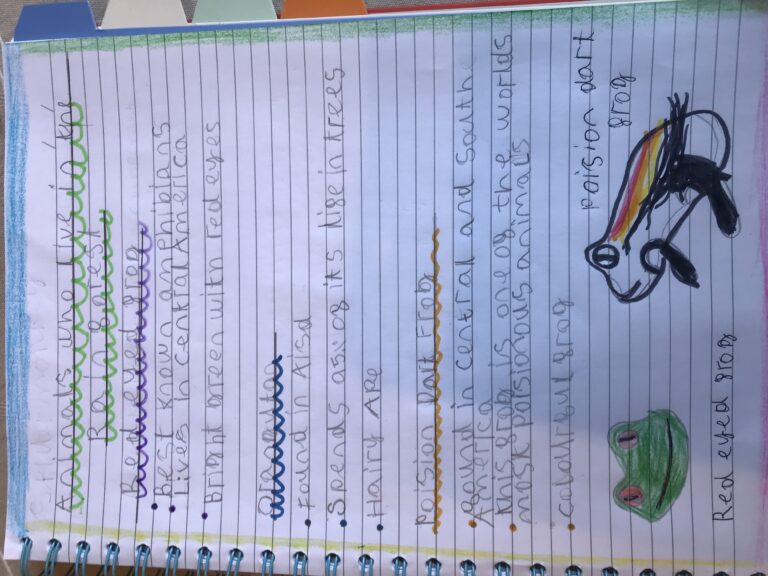 Animals live in the
Rainforest
Red eyed frog
Best known amphibians
Lives in central America
bright green with red eyes
Orangutan
Found in Aisa
Spends of its life in trees
Hairy APe
Poision Dart Frog
found in central and South
America
this frog is one of the worlds
most poisionous animals
colourful frog
poision dart
frog
Red eyed frog